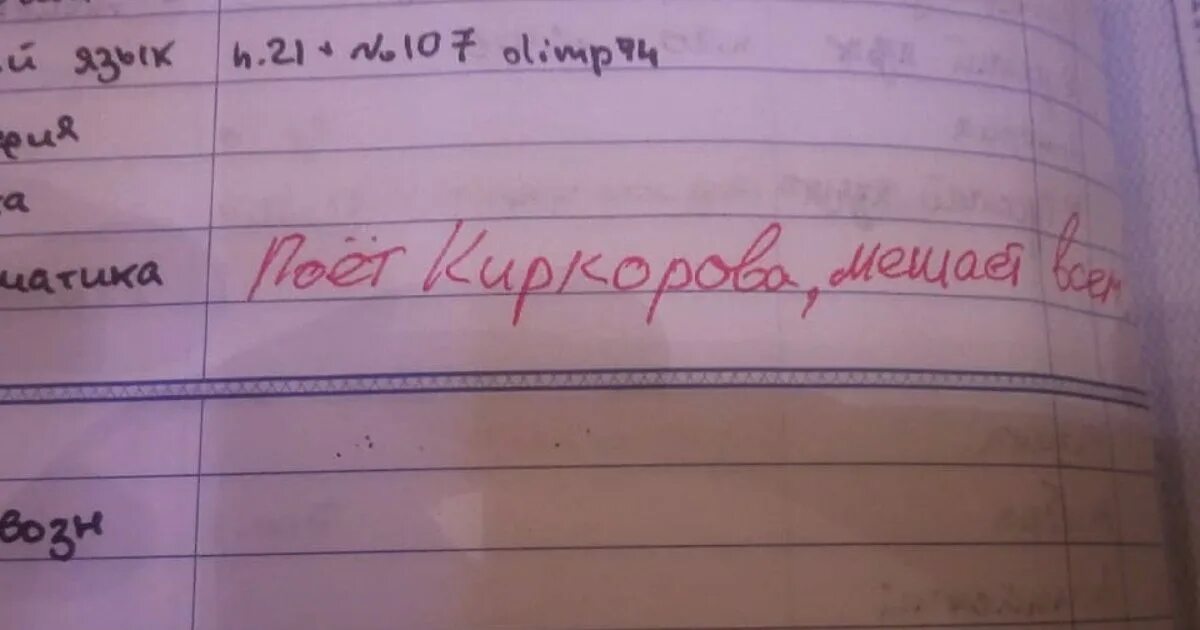 й язык п.21 + №107 olimp94
ерия
ка
матика Поёт Киркорова, мешает всем
возн